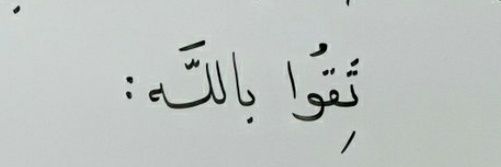 ثِقُوا بِاللَّه :